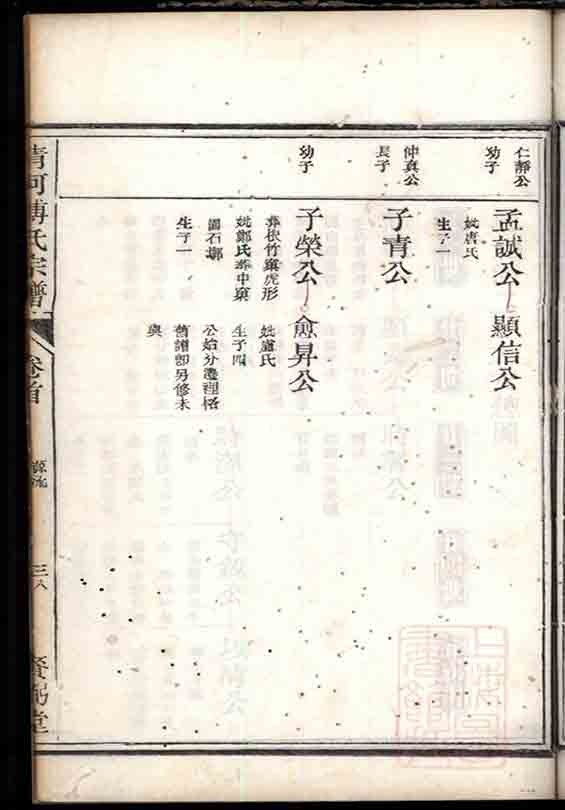 仁靜公
幼子
孟誠公
妣唐氏
生子一
顯信公
仲真公
長子
子青公
幼子
子榮公
葬松竹窠虎形
妣鄭氏葬中窠
圓石墎
生子一
愈昇公
妣盧氏
生子四
公始分遷理格
舊譜即另修未
與
清河傅氏宗譜
卷首
源流
三
賚弼堂